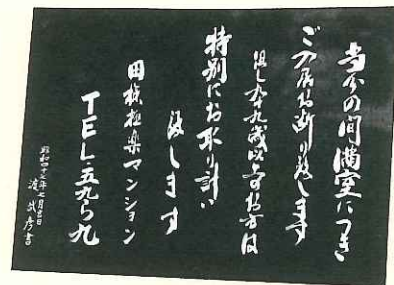 当分の間満室につき
ご入居お断り致します
但し九十九歳以上のお方は
特別にお取り計い
致します
田極楽マンション
TEL・五九ら九
昭和四十三年七月吉日
波 武彦書